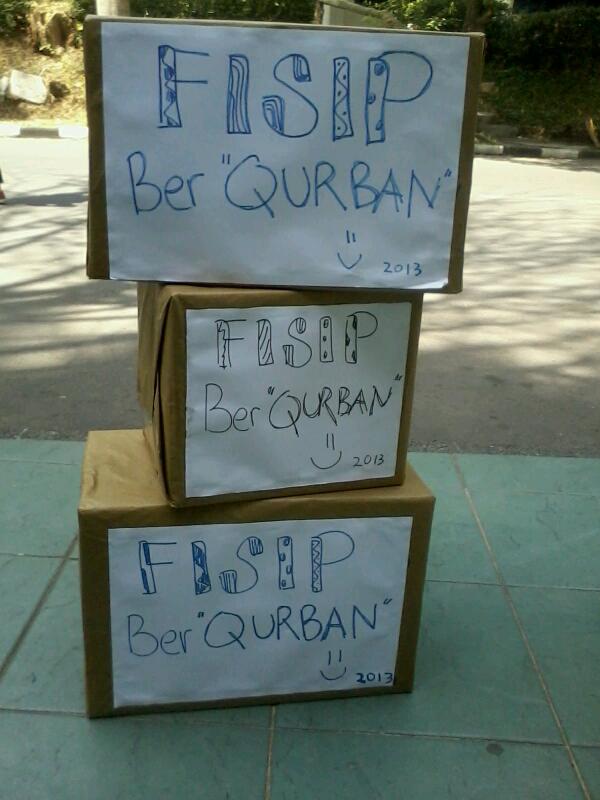 FISIP
Ber "QURBAN"
2013
FISIP
Ber "QURBAN"
2013
FISIP
Ber "QURBAN"
2013